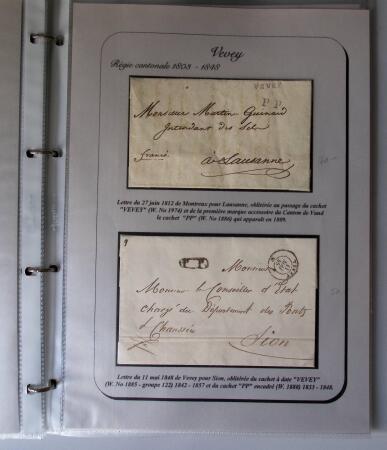 Vevey
Régie cantonale 1803 - 1848
VEVEY
PP
Monsieur Martin Guinaud
Intendant des Sels
franco
à Lausanne
Lettre du 27 juin 1812 de Montreux pour Lausanne, oblitérée au passage du cachet
"VEVEY" (W. No 1974) et de la première marque accessoire du Canton de Vaud
le cachet "PP" (W. No 1886) qui apparaît en 1809.
Monsieur
Monsieur le Conseiller d'Etat
Chargé du Département des Ponts
& Chaussées
Sion
Lettre du 11 mai 1848 de Vevey pour Sion, oblitérée du cachet à date "VEVEY"
(W. No 1885 - groupe 122) 1842 - 1857 et du cachet "PP" encadré (W. 1888) 1833 - 1848.